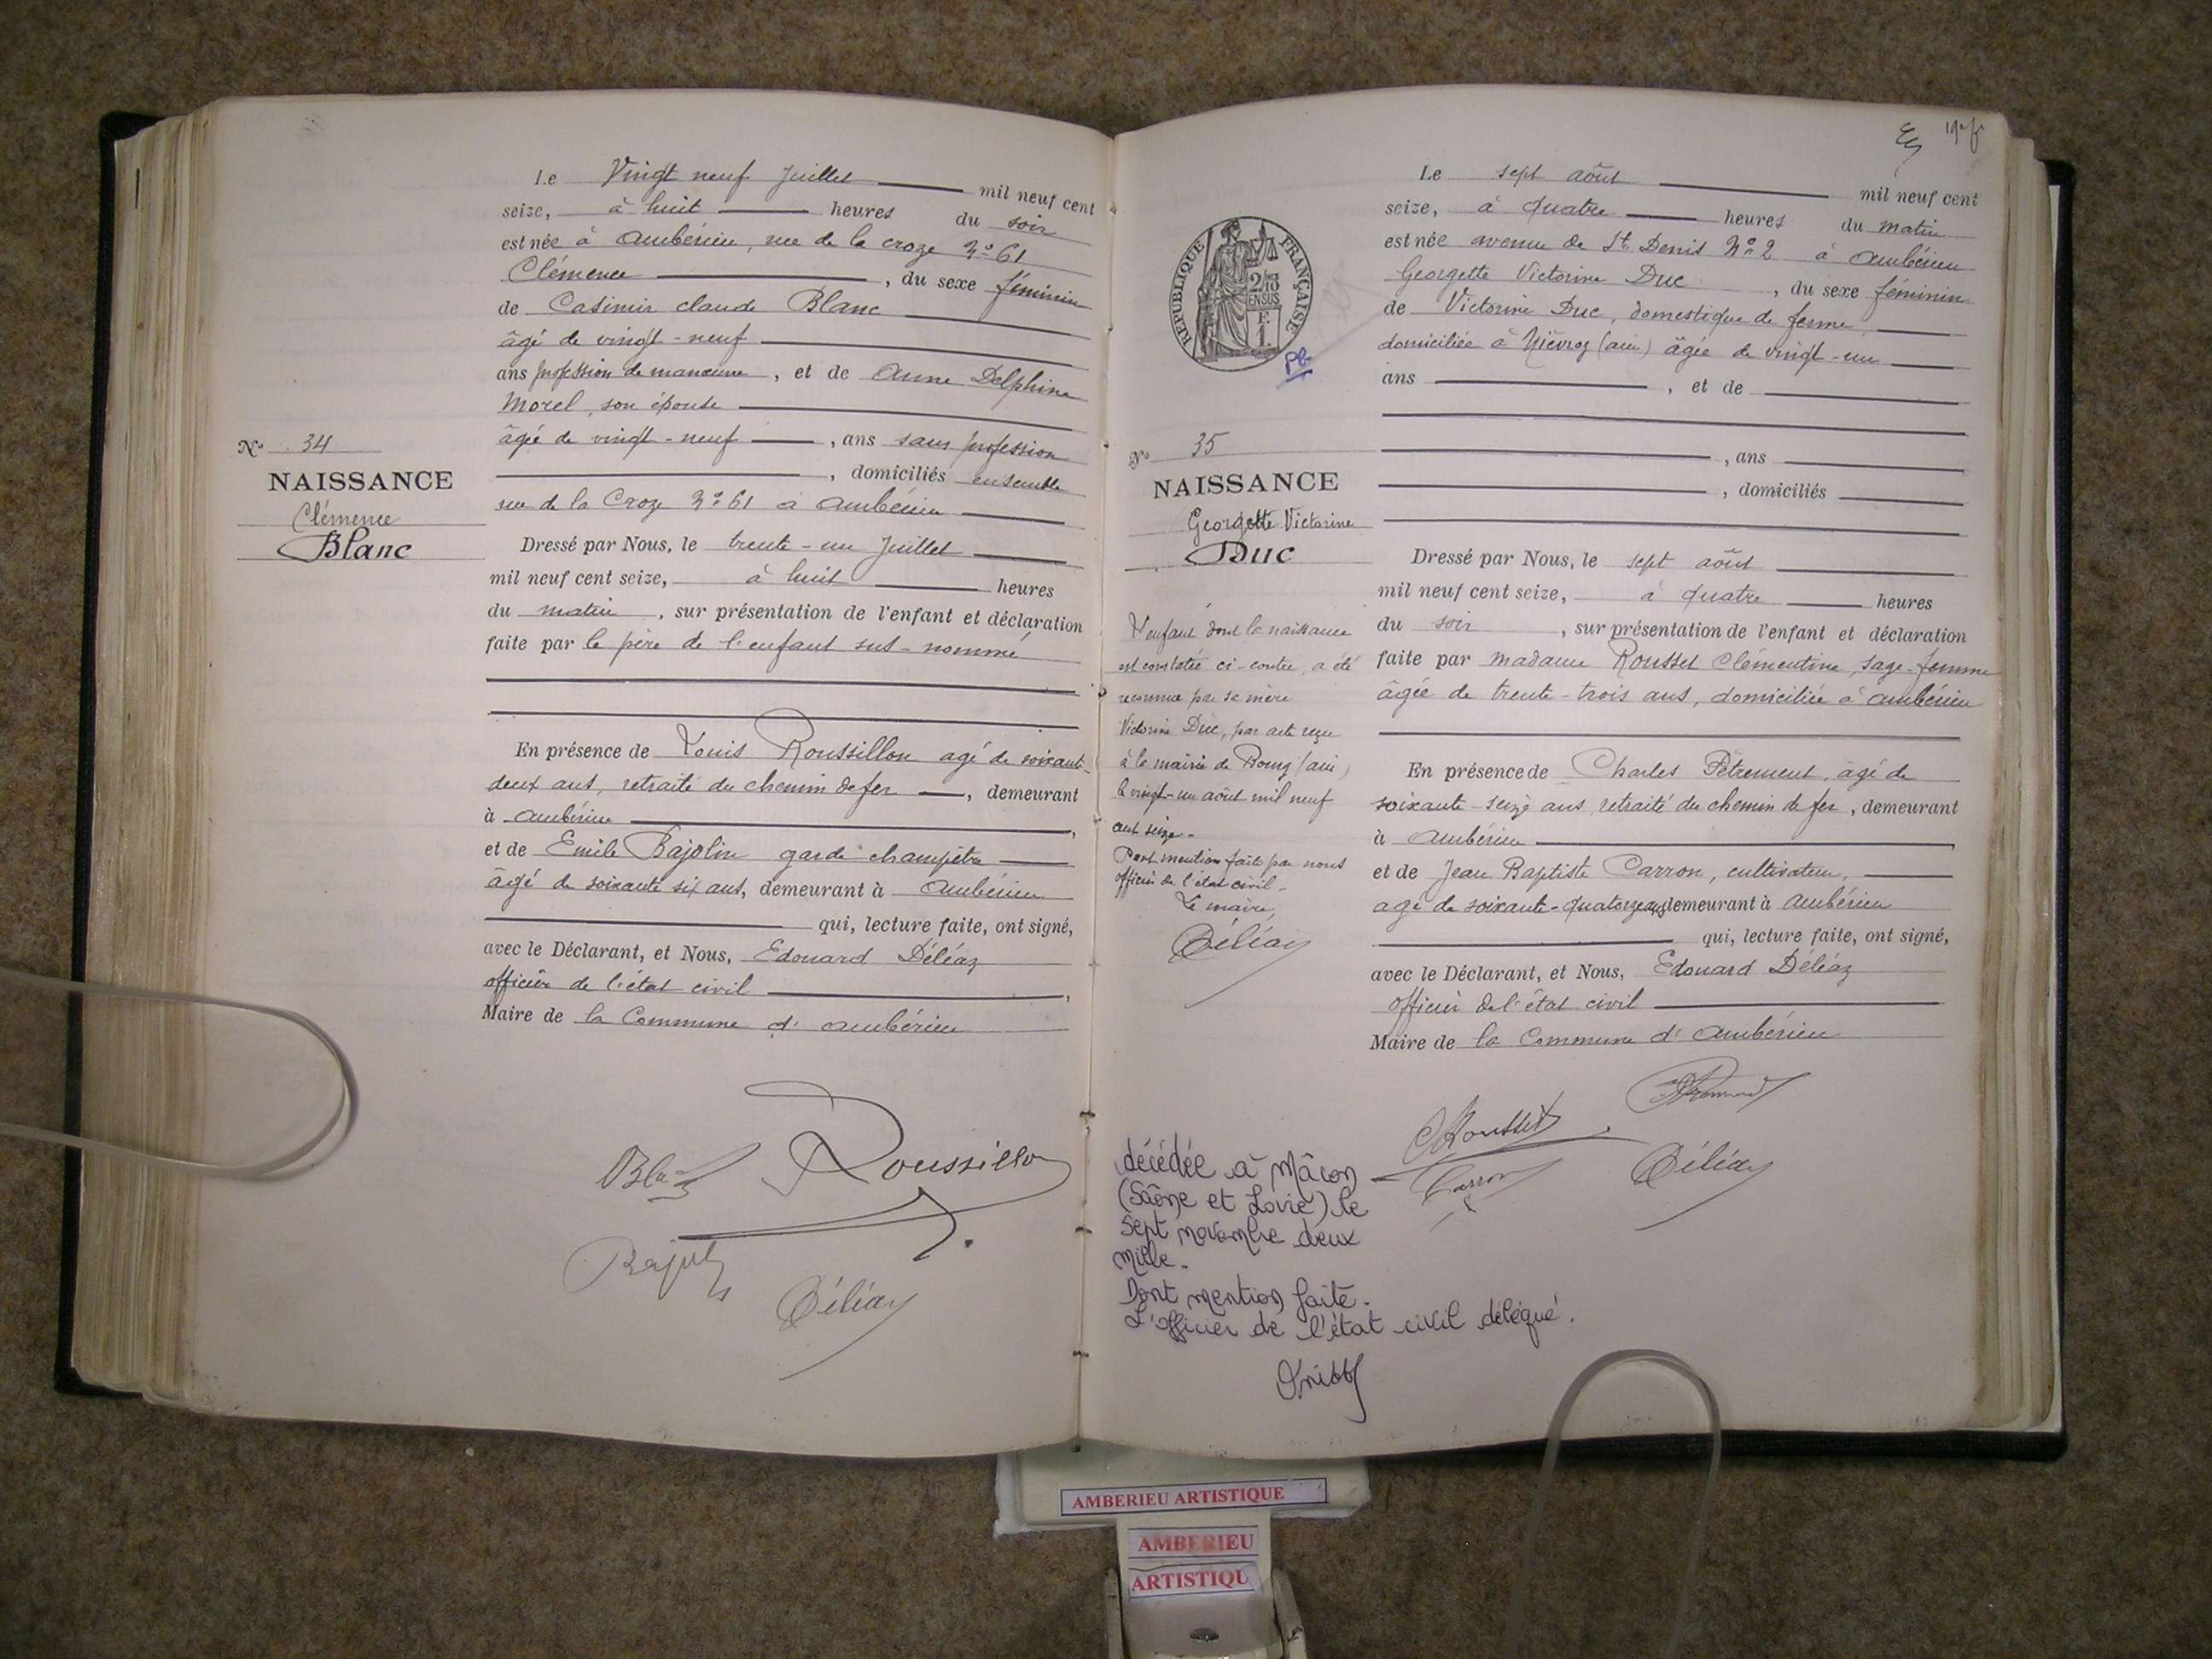 Le Vingt neuf Juillet mil neuf cent
seize, à huit heures du soir
est née à Ambérieu, rue de la croze No 61
Clémence, du sexe féminin
de Casimir claude Blanc
âgé de vingt-neuf
ans profession de manœuvre, et de Anne Delphine
Morel, son épouse
âgée de vingt-neuf, ans sans profession
, domiciliés ensemble
rue de la Croze No 61 à Ambérieu
No 34
NAISSANCE
Clémence
Blanc
Dressé par Nous, le trente-un Juillet
mil neuf cent seize, à huit heures
du matin, sur présentation de l'enfant et déclaration
faite par le père de l'enfant sus-nommé
En présence de Louis Roussillon agé de soixante-
deux ans, retraité du chemin de fer, demeurant
à Ambérieu,
et de Emile Bajolin garde champêtre
âgé de soixante six ans, demeurant à Ambérieu
qui, lecture faite, ont signé,
avec le Déclarant, et Nous, Edouard Déléaz
officier de l'état civil,
Maire de la Commune d'Ambérieu
Roussillon
Déléaz
Le sept août mil neuf cent
seize, à quatre heures du matin
est née avenue de St Denis No 2 à Ambérieu
Georgette Victorine Duc, du sexe féminin
de Victorine Duc, domestique de ferme,
domiciliée à Nièvroz (ain) âgée de vingt-un
ans, et de
, ans
, domiciliés
REPUBLIQUE FRANÇAISE
No 35
NAISSANCE
Georgette Victorine
Duc
L'enfant dont la naissance
est constatée ci-contre, a été
reconnue par sa mère
Victorine Duc, par acte reçu
à la mairie de Bourg (ain)
le vingt-un août mil neuf
cent seize-
Dont mention faite par nous
officier de l'état civil-
Le maire,
Déléaz
Dressé par Nous, le sept août
mil neuf cent seize, à quatre heures
du soir, sur présentation de l'enfant et déclaration
faite par madame Rousset Clémentine, sage-femme
âgée de trente-trois ans, domiciliée à Ambérieu
En présence de Charles Pétrement, âgé de
soixante-seize ans, retraité du chemin de fer, demeurant
à Ambérieu,
et de Jean Baptiste Carron, cultivateur,
agé de soixante-quatorze ans, demeurant à Ambérieu
qui, lecture faite, ont signé,
avec le Déclarant, et Nous, Edouard Déléaz
officier de l'état civil
Maire de la Commune d'Ambérieu
C Rousset
Carron
Déléaz
décédée à Mâcon
(Saône et Loire) le
sept novembre deux
mille.
Dont mention faite.
L'officier de l'état civil délégué.
AMBERIEU ARTISTIQUE
AMBERIEU
ARTISTIQU